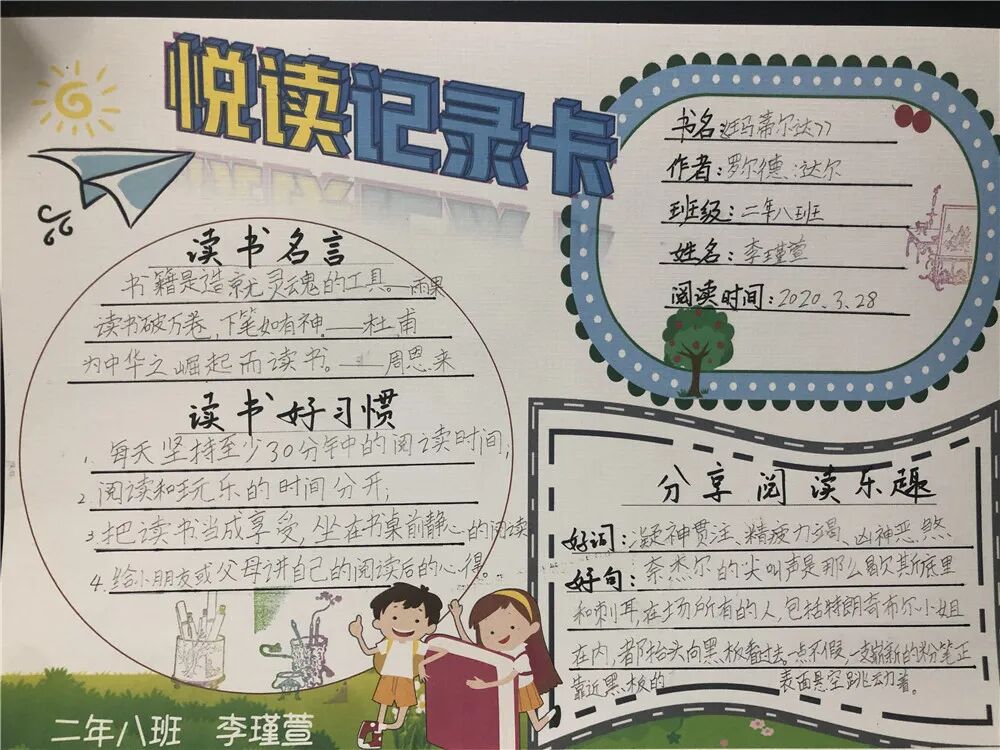 悦读记录卡
书名《玛蒂尔达》
作者:罗尔德.达尔
班级:二年八班
姓名:李瑾萱
阅读时间:2020.3.28
读书名言
书籍是造就灵魂的工具。—雨果
读书破万卷,下笔如有神——杜甫
为中华之崛起而读书。——周恩来
读书好习惯
1. 每天坚持至少30分钟的阅读时间;
2. 阅读和玩乐的时间分开;
3 把读书当成享受,坐在书桌前静心的阅读
4. 给小朋友或父母讲自己的阅读后的心得。
分享阅读乐趣
好词:凝神贯注、精疲力竭、凶神恶煞
好句:奈杰尔的尖叫声是那么歇斯底里
和刺耳,在场所有的人,包括特朗奇布尔小姐
在内,都抬头向黑板看过去。一点不假,一支崭新的粉笔正
靠近黑板的 表面悬空跳动着。
二年八班 李瑾萱